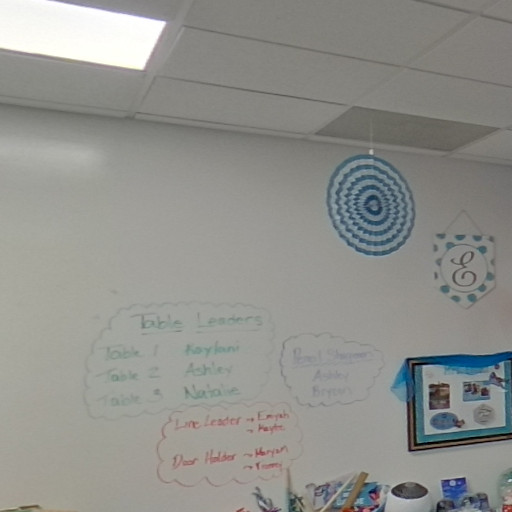 Table Leaders
Table 1 Kaylani
Table 2 Ashley
Table 3 Natalie
Pencil Sharpeners
Ashley
Bryan
Line Leader → Emiyah
→ Kaylee
Door Holder → Maryam
→
E